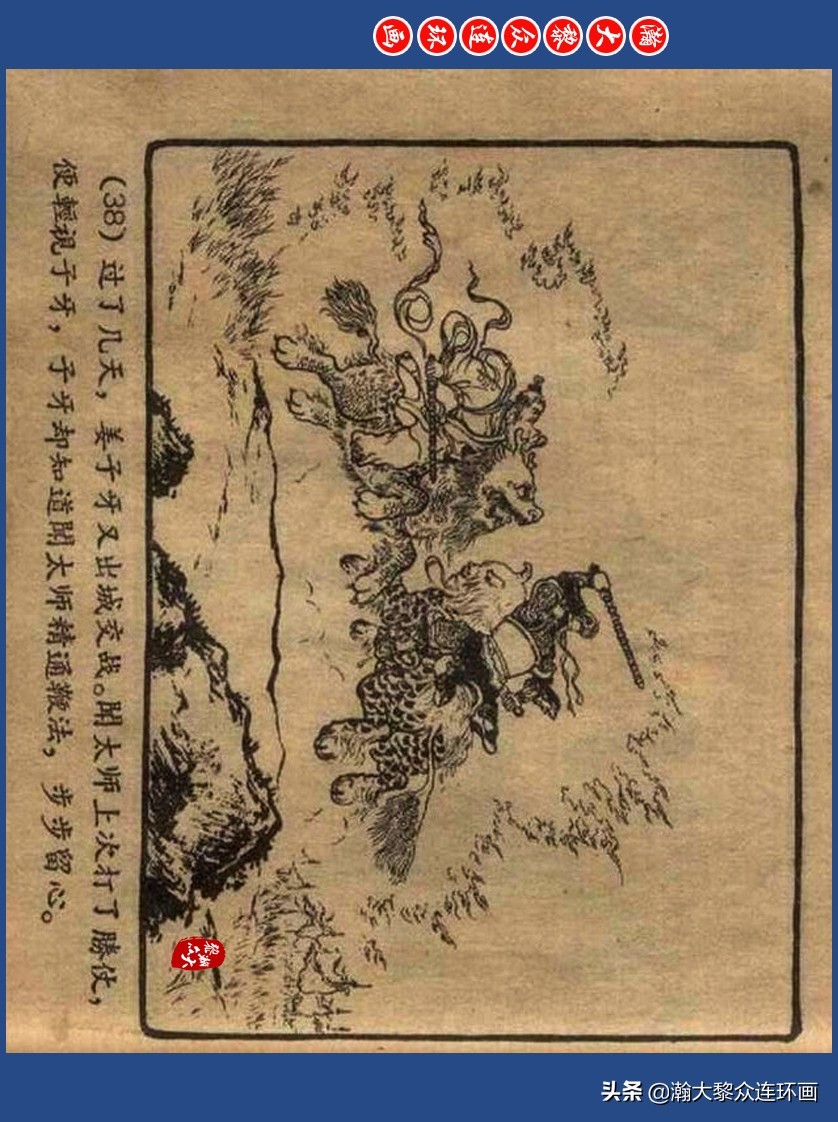 瀚大黎众连环画
(38)过了几天，姜子牙又出城交战。聞太师上次打了勝仗，
便輕視子牙，子牙却知道聞太师精通鞭法，步步留心。
瀚大
黎众
头条 @瀚大黎众连环画